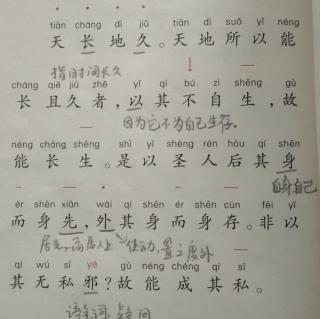 tiān cháng dì jiǔ tiān dì suǒ yǐ néng
天长地久。天地所以能
指时间长久
cháng qiě jiǔ zhě yǐ qí bú zì shēng gù
长且久者，以其不自生，故
因为它不为自己生存。
néng cháng shēng shì yǐ shèng rén hòu qí shēn
能长生。是以圣人后其身
自身自己
ér shēn xiān wài qí shēn ér shēn cún fēi yǐ
而身先，外其身而身存。非以
居先，高居人上 使动，置之度外
qí wú sī yé gù néng chéng qí sī
其无私邪？故能成其私。
语气词，疑问